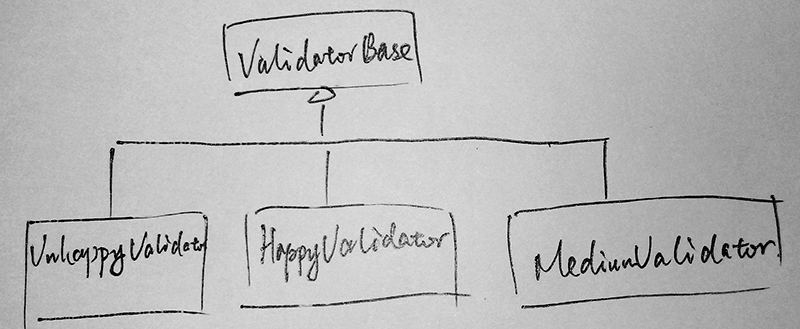 ValidatorBase
UnhappyValidator
HappyValidator
MediumValidator